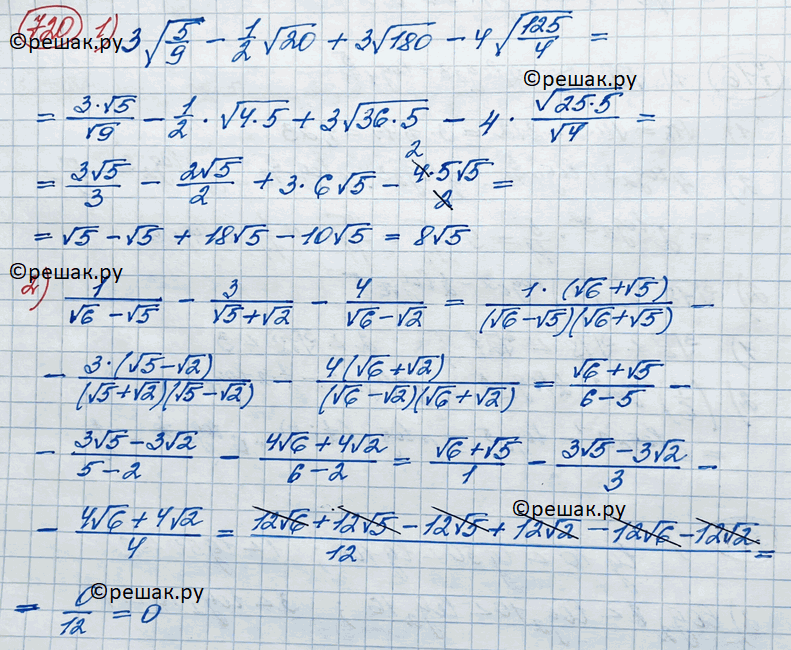 720 1) 3√(5/9) − 1/2 √20 + 3√180 − 4√(125/4) =
©решак.ру
©решак.ру
= (3·√5)/√9 − 1/2 · √(4·5) + 3√(36·5) − 4 · √(25·5)/√4 =
= 3√5/3 − 2√5/2 + 3·6√5 − (4·5√5)/2 = 2
= √5 − √5 + 18√5 − 10√5 = 8√5
©решак.ру
2) 1/(√6 − √5) − 3/(√5+√2) − 4/(√6−√2) = (1·(√6+√5))/((√6−√5)(√6+√5)) −
− (3·(√5−√2))/((√5+√2)(√5−√2)) − (4(√6+√2))/((√6−√2)(√6+√2)) = (√6+√5)/(6−5) −
− (3√5−3√2)/(5−2) − (4√6+4√2)/(6−2) = (√6+√5)/1 − (3√5−3√2)/3 −
©решак.ру
− (4√6+4√2)/4 = (12√6+12√5−12√5+12√2−12√6−12√2)/12 =
©решак.ру
= 0/12 = 0